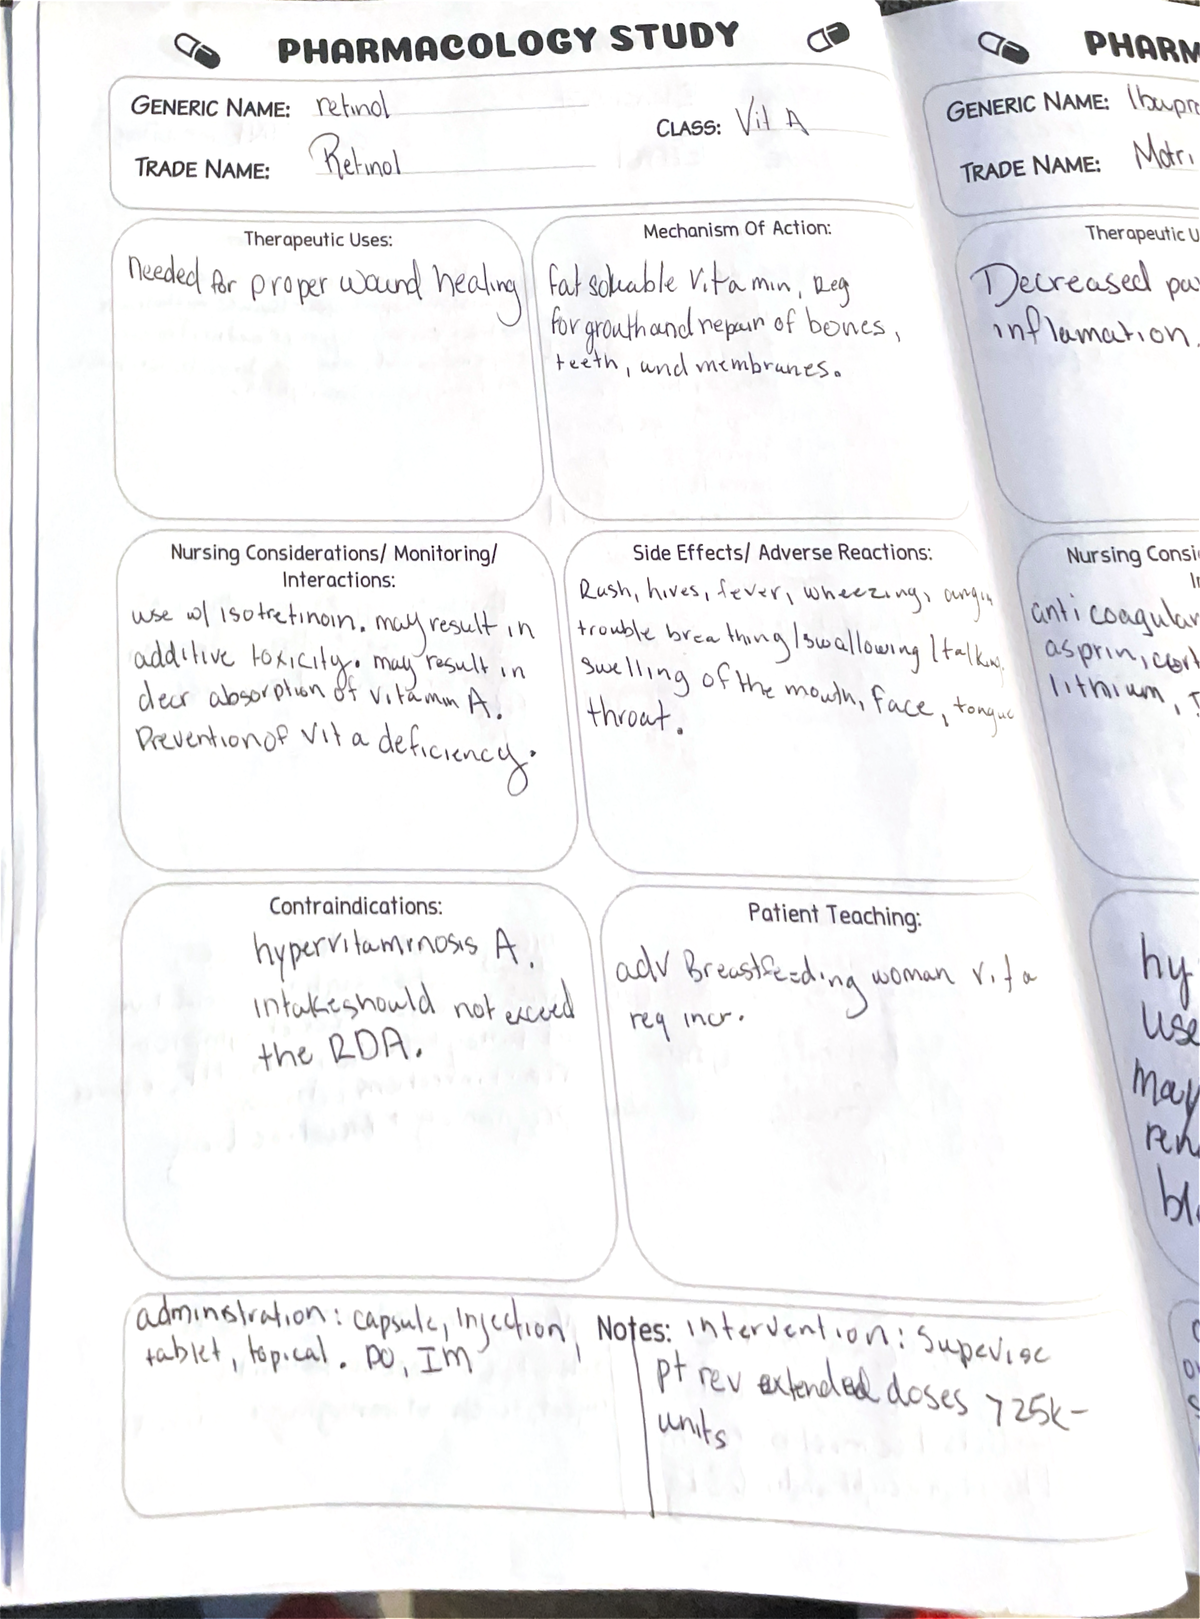 PHARMACOLOGY STUDY
GENERIC NAME: retinol
CLASS: Vit A
TRADE NAME: Retinol
Therapeutic Uses:
needed for proper wound healing
Mechanism Of Action:
Fat soluable vitamin, Req
for grouth and repair of bones,
teeth, and membranes.
Nursing Considerations/ Monitoring/
Interactions:
use w/ isotretinoin. may result in
additive toxicity. may result in
decr absorption of vitamin A.
Prevention of Vit a deficiency.
Side Effects/ Adverse Reactions:
Rash, hives, fever, wheezing,
trouble breathing/swallowing/talking,
swelling of the mouth, face, tongue
throat.
Contraindications:
hypervitaminosis A.
intake should not exceed
the RDA.
Patient Teaching:
adv Breastfeeding woman vit a
req incr.
adminstration: capsule, injection
tablet, topical. PO, IM
Notes: intervention: Supevise
pt rev extended doses >25k-
units
PHARM
GENERIC NAME: Ibupr
TRADE NAME: Motri
Therapeutic U
Decreased pa
inflamation.
Nursing Consi
anticoagular
asprin, cort
lithium,
hy
use
may
ren
bl